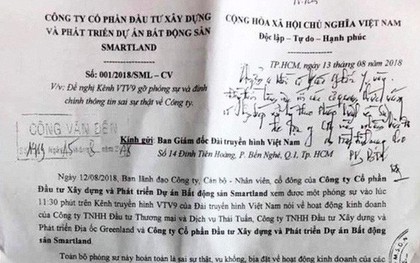 CÔNG TY CỔ PHẦN ĐẦU TƯ XÂY DỰNG
VÀ PHÁT TRIỂN DỰ ÁN BẤT ĐỘNG SẢN
SMARTLAND
CỘNG HÒA XÃ HỘI CHỦ NGHĨA VIỆT NAM
Độc lập - Tự do - Hạnh phúc
Số: 001/2018/SML - CV
TP.HCM, ngày 13 tháng 08 năm 2018
V/v: Đề nghị Kênh VTV9 gỡ phóng sự và đính
chính thông tin sai sự thật về Công ty.
CÔNG VĂN ĐẾN
Kính gửi: Ban Giám đốc Đài truyền hình Việt Nam
Số 14 Đinh Tiên Hoàng, P. Bến Nghé, Q.1, Tp. HCM
Ngày 12/08/2018, Ban lãnh đạo Công ty, Cán bộ - Nhân viên, cổ đông của Công ty Cổ phần
Đầu tư Xây dựng và Phát triển Dự án Bất động sản Smartland xem được một phóng sự vào lúc
11:30 phút trên Kênh truyền hình VTV9 của Đài truyền hình Việt Nam nói về hoạt động kinh doanh
của Công ty TNHH Đầu tư Thương mại và Dịch vụ Thái Tuấn, Công ty TNHH Đầu tư Xây dựng và
Phát triển Địa ốc Greenland và Công ty Cổ phần Đầu tư Xây dựng và Phát triển Dự án Bất động
sản Smartland.
Toàn bộ phóng sự này hoàn toàn là sai sự thật, vu khống, bịa đặt về hoạt động kinh doanh của